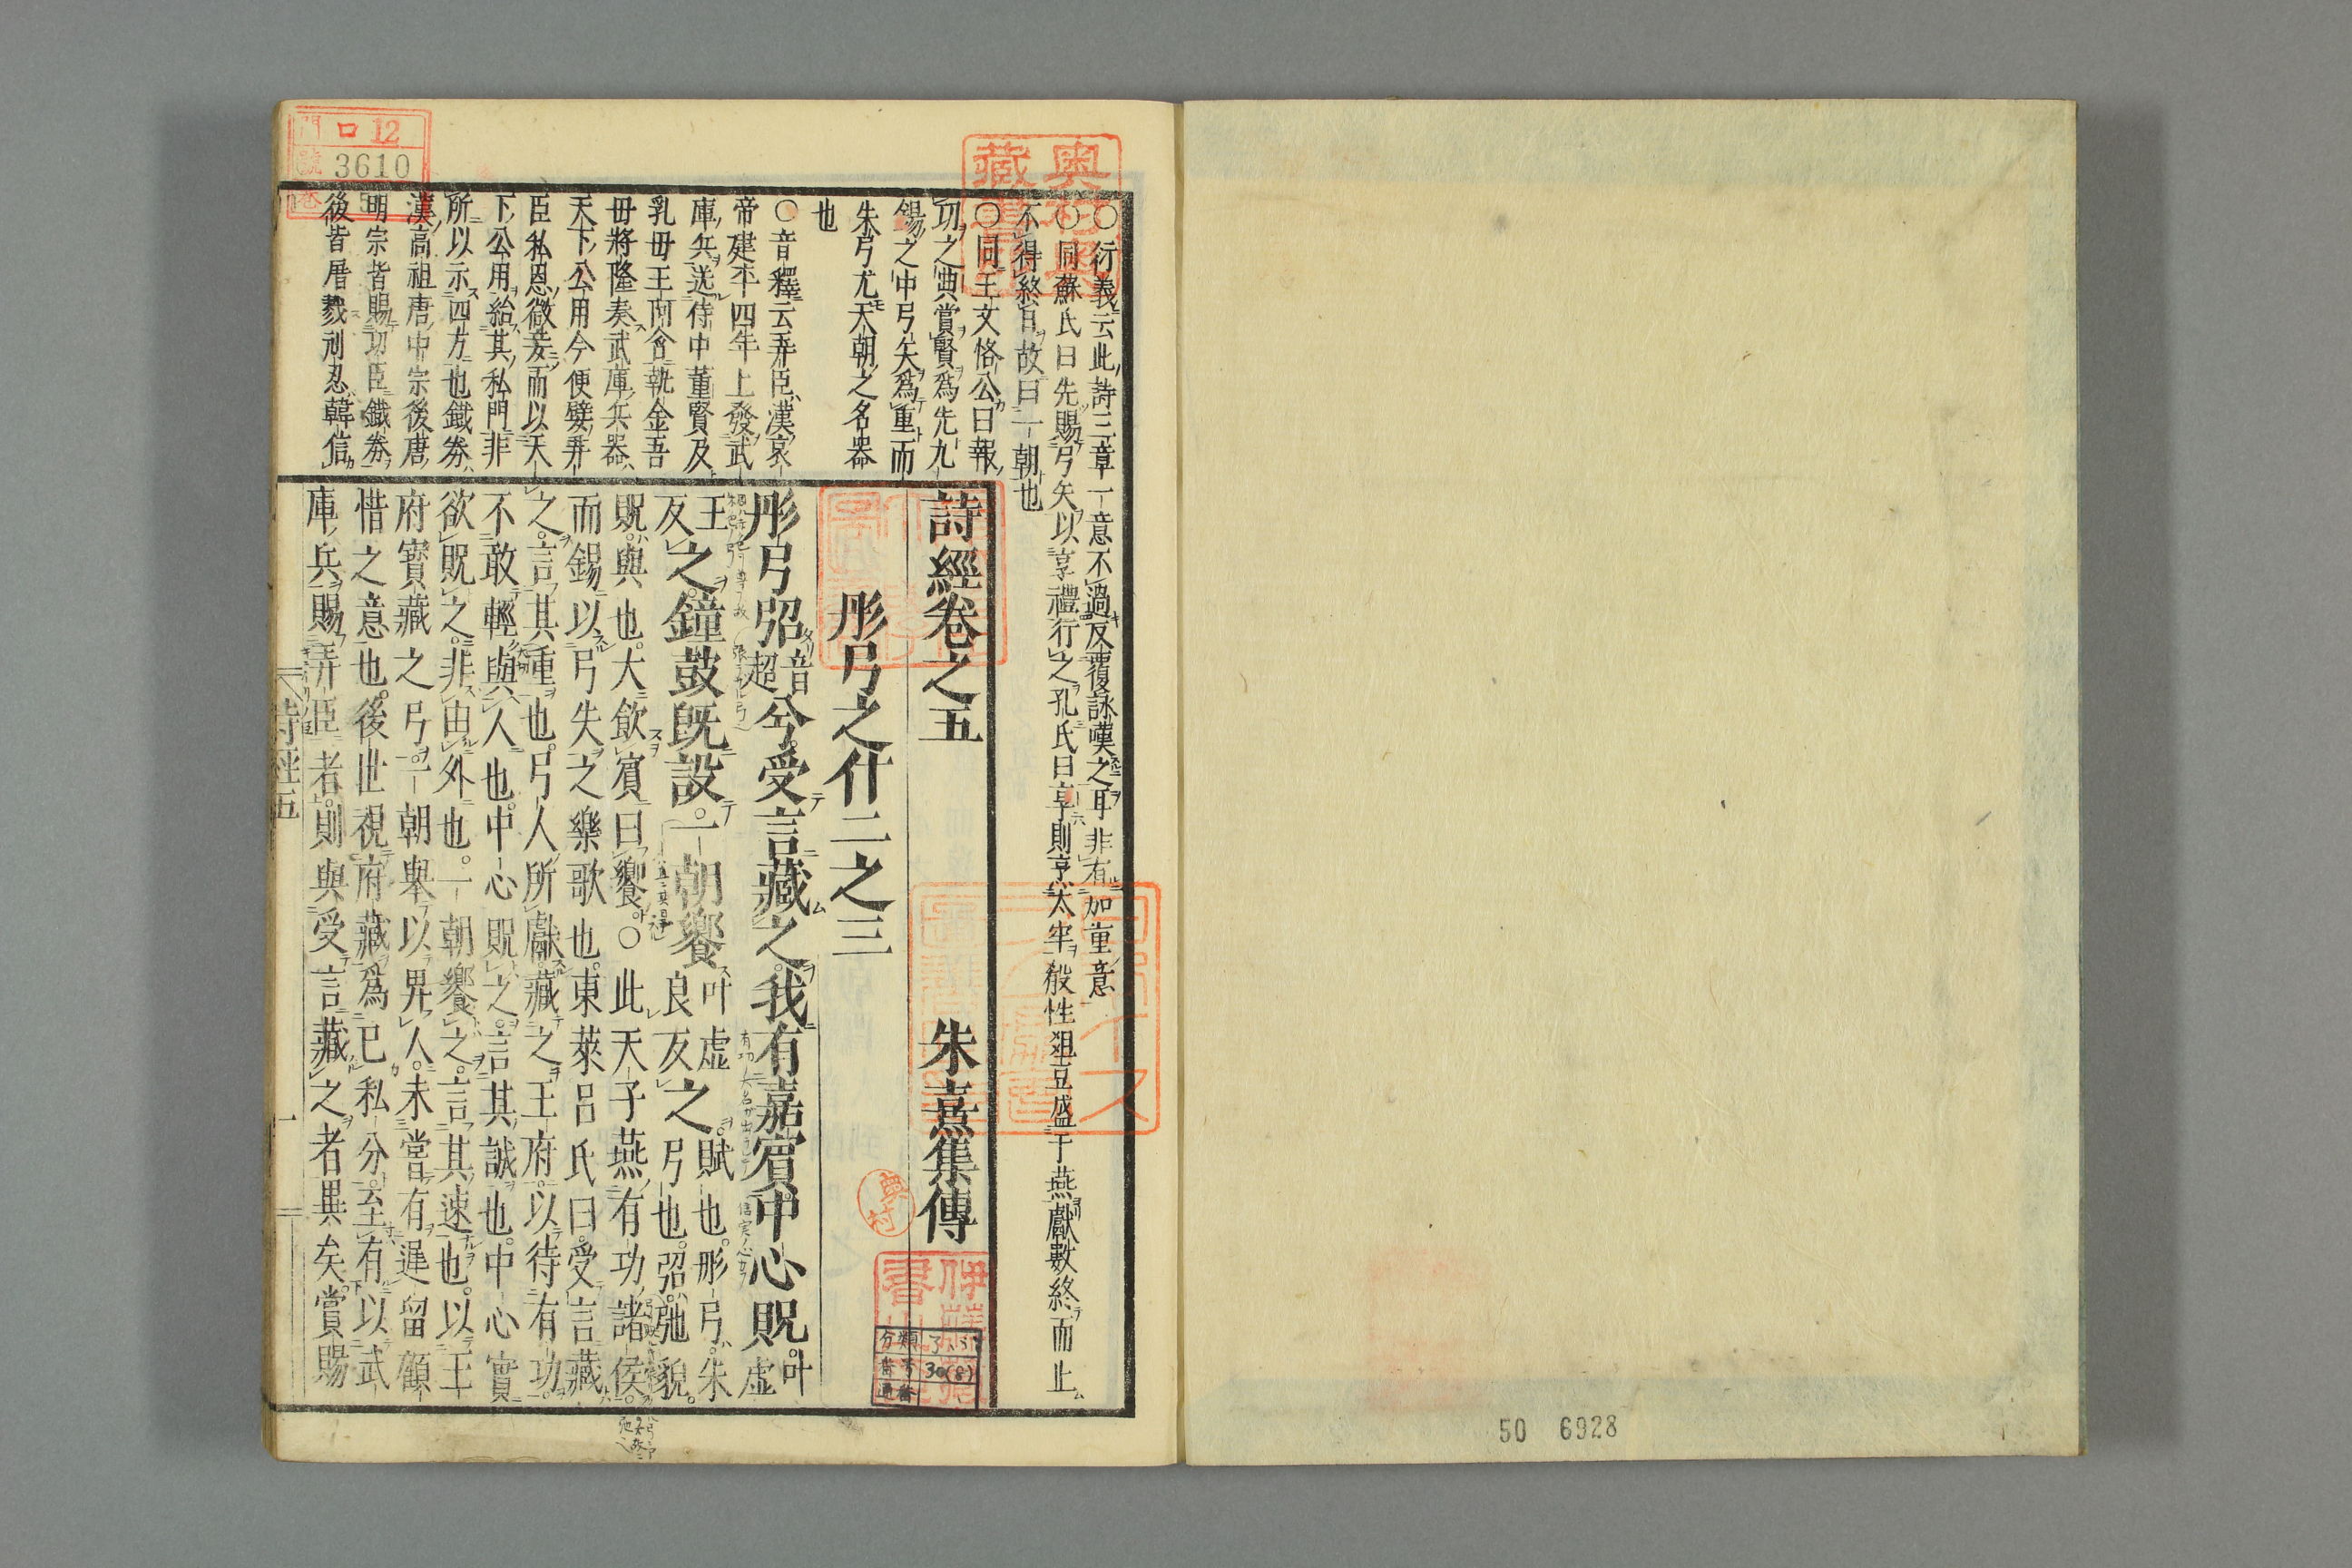 ○衍義云此詩三章一意不過反覆詠嘆之耳非有加重意
○同蘇氏曰先賜弓矢以享禮行之孔氏曰享則亨太牢殽牲俎豆盛于燕獻數終而止
不得終日故曰一朝也
○同王文恪公曰報
功之典賞賢爲先九
錫之中弓矢爲重而
朱弓尤天朝之名器
也
○音釋云弄臣漢哀
帝建平四年上發武
庫兵送侍中董賢及
乳母王阿舍執金吾
毋將隆奏武庫兵器
天下公用今便嬖弄
臣私恩微妾而以天
下公用給其私門非
所以示四方也鐵券
漢高祖唐中宗後唐
明宗皆賜功臣鐵券
後皆屠戮刖忍韓信
詩經卷之五
朱熹集傳
彤弓之什二之三
彤弓弨音超兮受言藏之我有嘉賓中心貺叶虛
王反之鐘鼓既設一朝饗叶虛良反之賦也彤弓朱
弓也弨弛貌
貺與也大飲賓曰饗○此天子燕有功諸侯
而錫以弓矢之樂歌也東萊呂氏曰受言藏
之言其重也弓人所獻藏之王府以待有功
不敢輕與人也中心貺之言其誠也中心實
欲貺之非由外也一朝饗之言其速也以王
府寶藏之弓一朝舉以畀人未嘗有遲留顧
惜之意也後世視府藏爲己私分至有以武
庫兵賜弄臣者則與受言藏之者異矣賞賜
詩經五
一
奥村
門 口12
號 3610
卷
50 6928